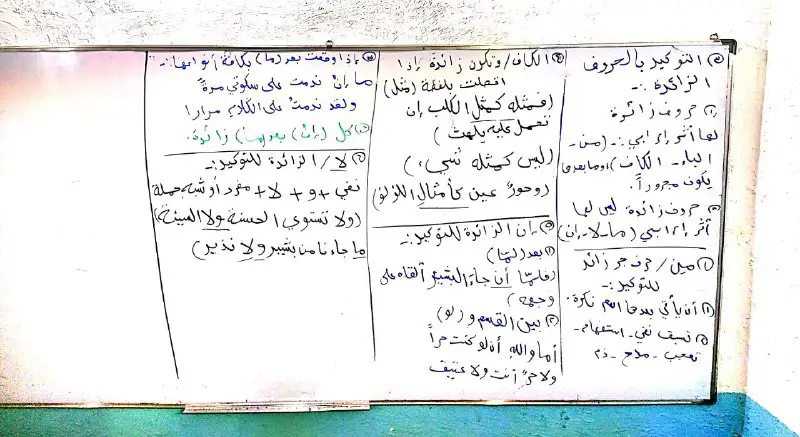 * التوكيد بالحروف
الزائدة :-
① حروف زائدة
لها أثر إعرابي :- (من -
الباء - الكاف) وما بعدها
يكون مجروراً.
② حروف زائدة ليس لها
أثر إعرابي (ما - لا - إن)
① من / حرف جر زائد
للتوكيد :-
① أن يأتي بعدها اسم نكرة.
② تسبق نفي - استفهام -
تعجب - مدح - ذم
② الكاف / وتكون زائدة إذا
اتصلت بلفظة (مثل)
(فمثله كمثل الكلب إن
تحمل عليه يلهث)
(ليس كمثله شيء)
(وحورٌ عين كأمثال اللؤلؤ)
③ إن الزائدة للتوكيد :-
① بعد (لمّا)
(فلمّا أن جاء البشير ألقاه على
وجهه)
② بين القسم و (لو)
أما والله أن لو كنت حراً
ولا حرٌ أنت ولا عتيق
③ إذا وقعت بعد (ما) بكافة أنواعها :-
ما إنْ ندمت على سكوتي مرةً
ولقد ندمتُ على الكلام مرارا
كل (إنْ) بعد (ما) زائدة.
④ لا / الزائدة للتوكيد :-
نفي + و + لا + مفرد أو شبه جملة
(ولا تستوي الحسنة ولا السيئة)
(ما جاءنا من بشير ولا نذير)